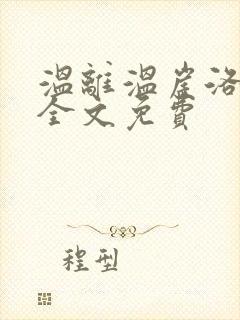 溫離溫崖洛
全文免費
程型